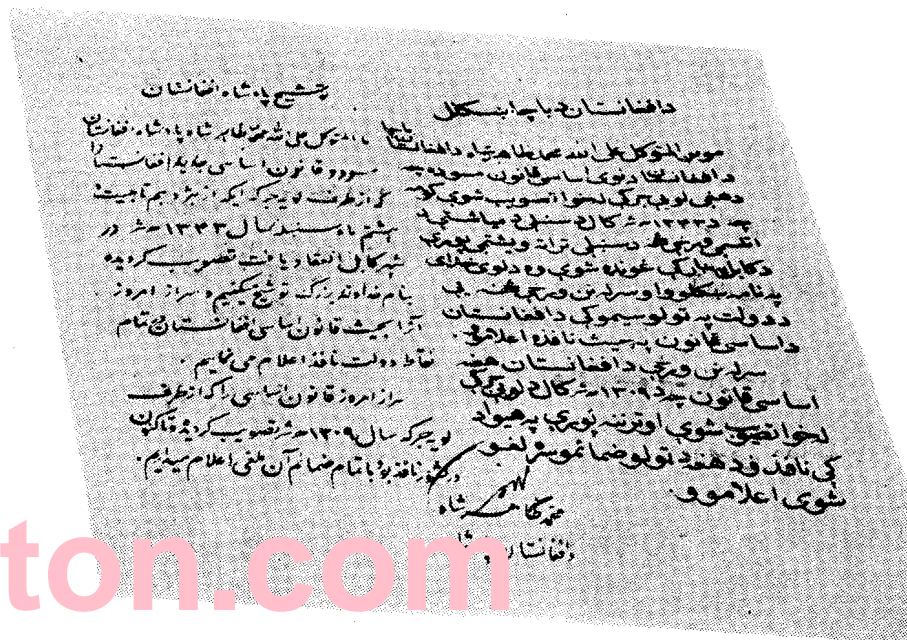 د افغانستان د پاچا ښکلل
موږ المتوکل علی الله محمد ظاهر شاه د افغانستان پاچا
د افغانستان د نوی اساسی قانون مسوده چه
د هغی لویی جرګی لخوا تصویب شوی کومه
چه د ۱۳۴۳ هـ ش کال د سنبلی د میاشتی له
اتلسمی ورځی څخه د سنبلی تر ویشتمی پوری
د کابل په ښار کی غونډه شوی وه د لوی خدای
په نامه ښکلوو او سر له نن ورځی څخه یی
د دولت په ټولو سیمو کی د افغانستان
د اساسی قانون په حیث نافذه اعلاموو.
سر له نن ورځی د افغانستان هغه
اساسی قانون چه د ۱۳۰۹ هـ ش کال د لویی جرګی
لخوا تصویب شوی او تر ننه پوری په هیواد
کی نافذ ؤ د هغه د ټولو ضمائمو سره لغو
شوی اعلاموو.
توشیح پادشاه افغانستان
ما المتوکل علی الله محمد ظاهر شاه پادشاه افغانستان
مسوده قانون اساسی جدید افغانستان را
که از طرف لویه جرگه ایکه از بژدهم تا بیست
هشتم ماه سنبله سال ۱۳۴۳ هـ ش در
شهر کابل انعقاد یافت تصویب گردیده
بنام خداوند بزرگ توشیح میکنیم و سر از امروز
آنرا بحیث قانون اساسی افغانستان در تمام
نقاط دولت نافذ اعلام می نماییم.
سر از امروز قانون اساسی را که از طرف
لویه جرگه سال ۱۳۰۹ هـ ش تصویب گردیده و تاکنون
در کشور نافذ بود با تمام ضمائم آن ملغی اعلام میداریم.
محمد ظاهر شاه
د افغانستان پاچا
ton.com